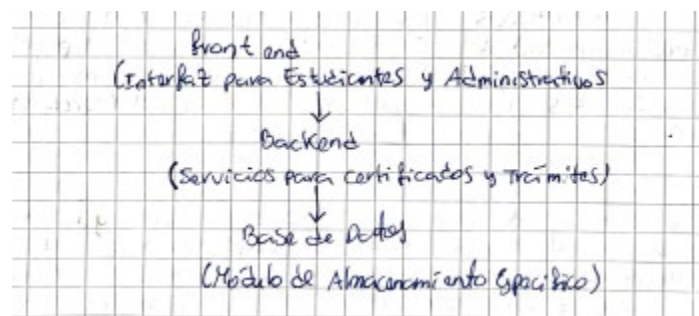 Front end
(Interfaz para Estudiantes y Administrativos
Backend
(Servicios para certificados y Trámites)
Base de Datos
(Módulo de Almacenamiento Específico)